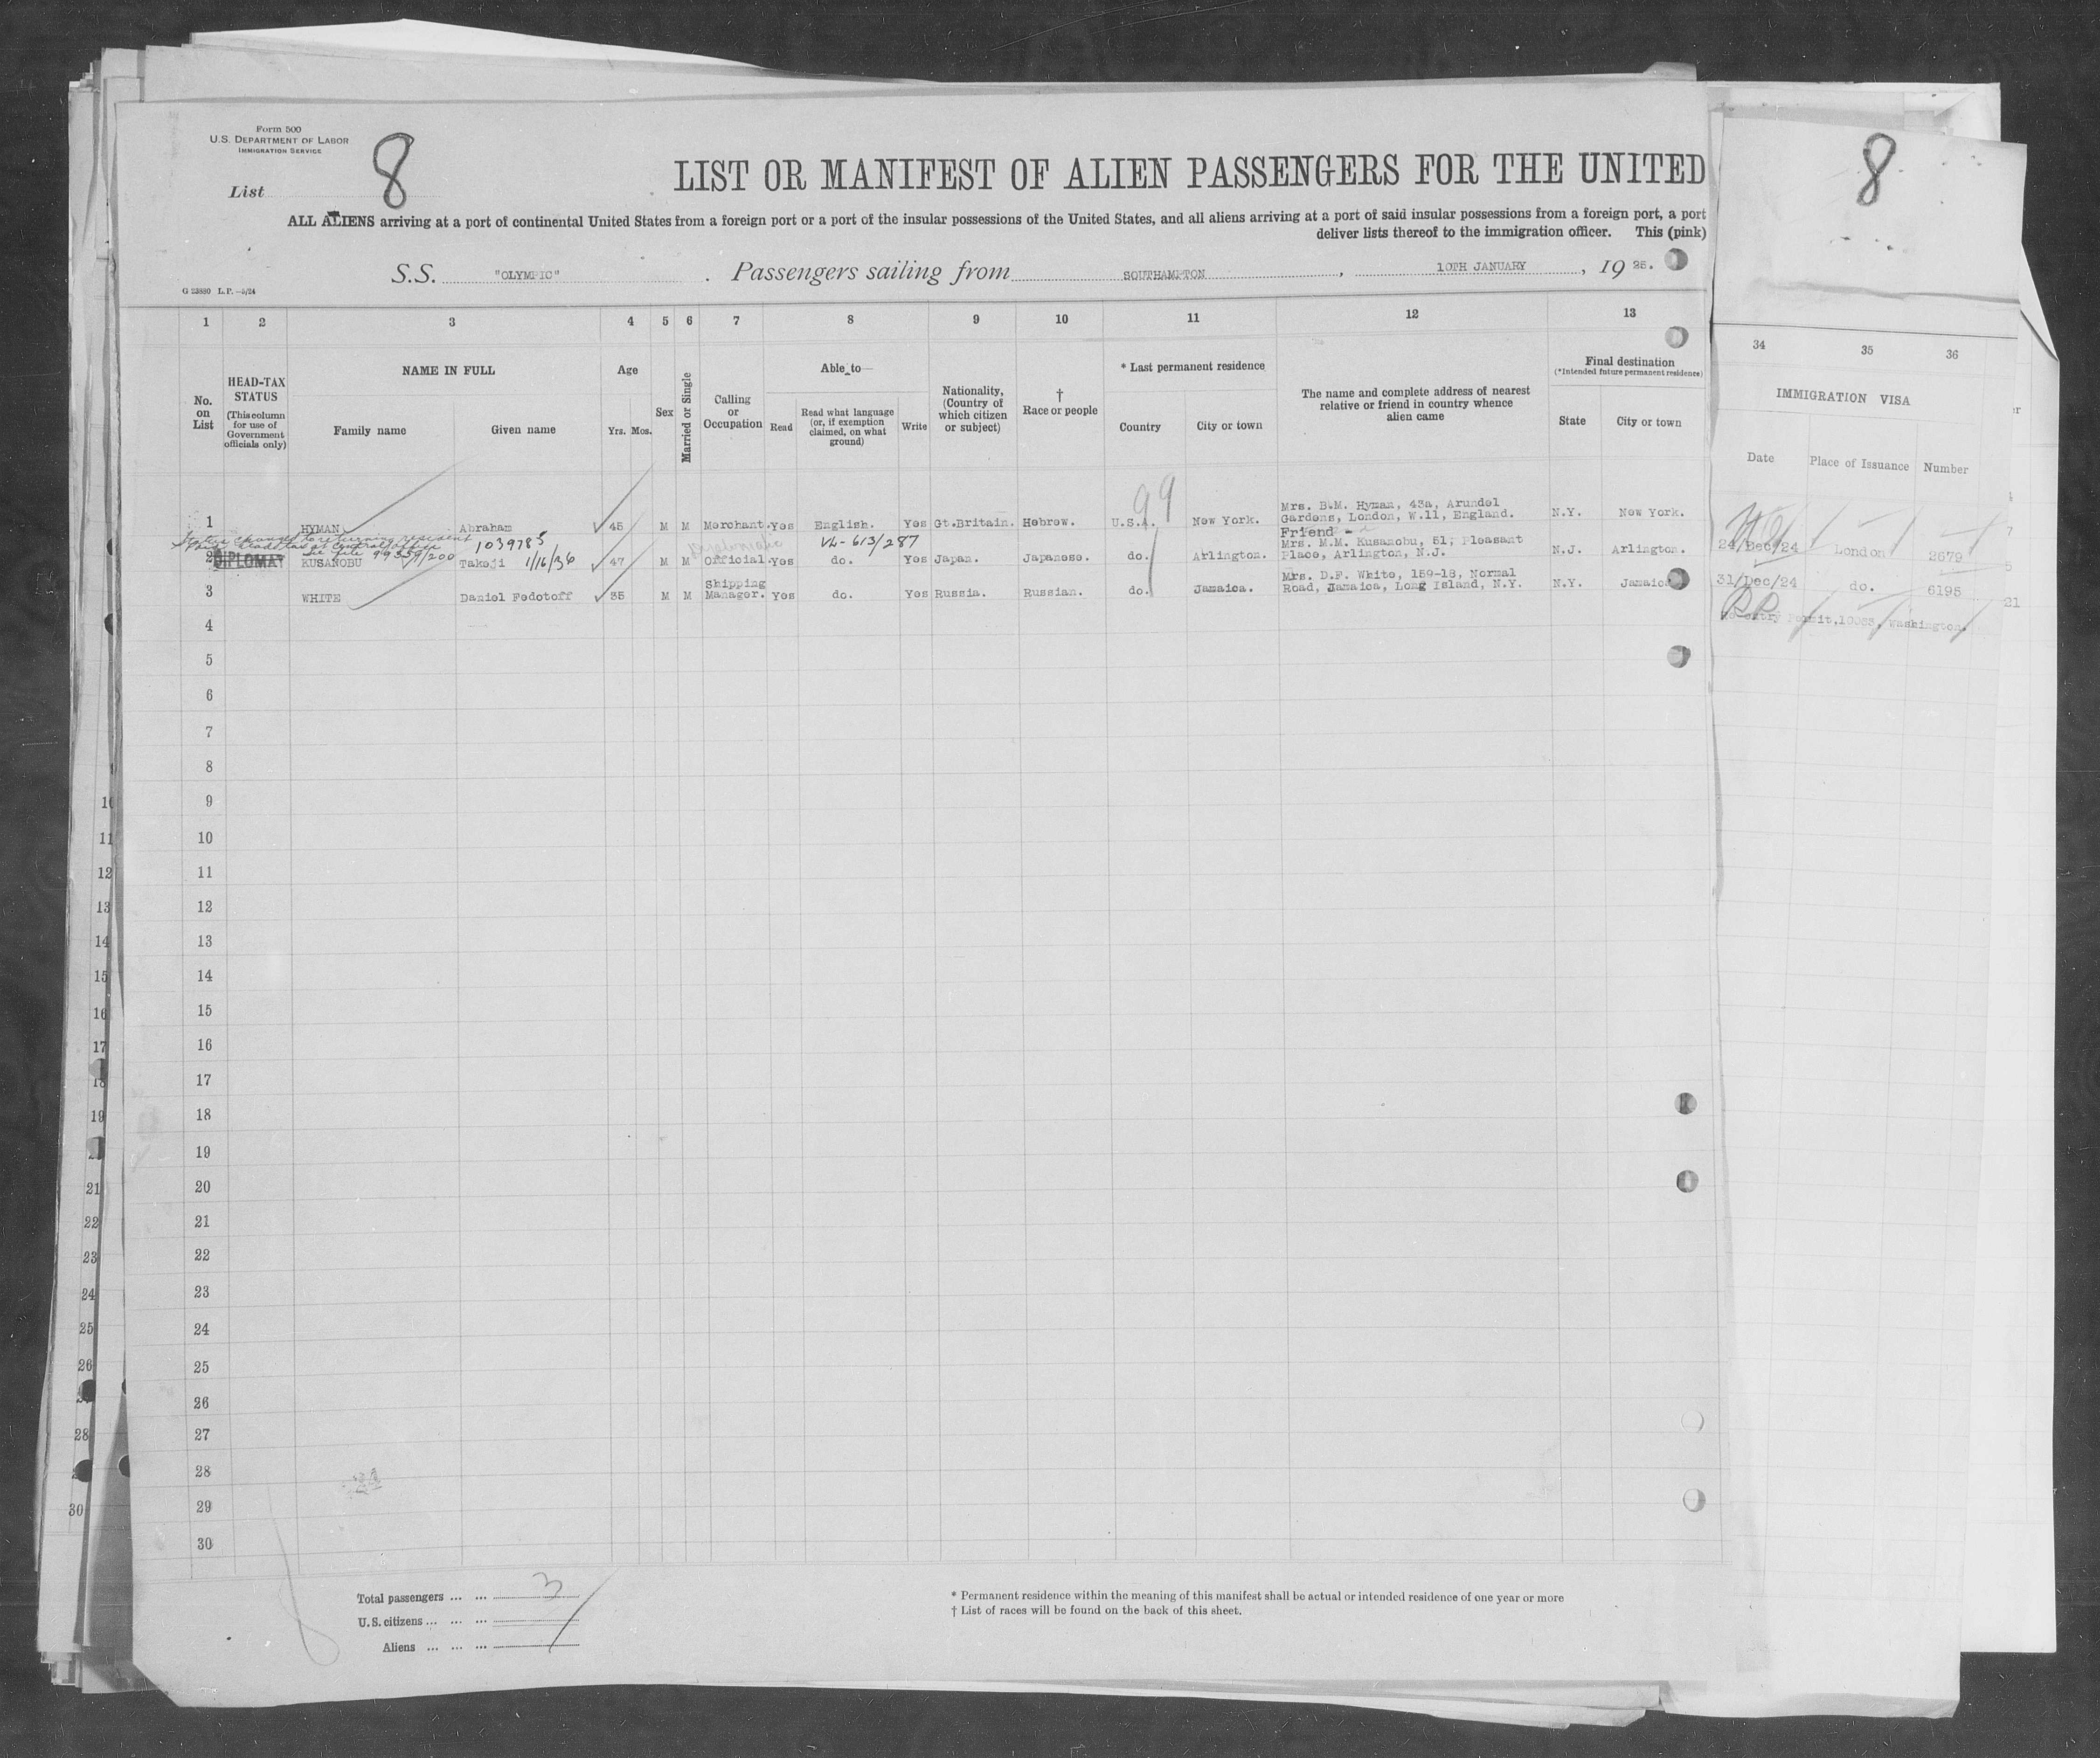 Form 500
U.S. DEPARTMENT OF LABOR
IMMIGRATION SERVICE
List 8
8
LIST OR MANIFEST OF ALIEN PASSENGERS FOR THE UNITED
ALL ALIENS arriving at a port of continental United States from a foreign port or a port of the insular possessions of the United States, and all aliens arriving at a port of said insular possessions from a foreign port, a port
deliver lists thereof to the immigration officer. This (pink)
S.S. "OLYMPIC". Passengers sailing from SOUTHAMPTON, 10TH JANUARY, 19 25.
G 23880 L.P.—5/24
1 2 3 4 5 6 7 8 9 10 11 12 13 34 35 36
No. on List
HEAD-TAX STATUS
(This column for use of Government officials only)
NAME IN FULL
Family name Given name
Age
Yrs. Mos.
Sex
Married or Single
Calling or Occupation
Able to—
Read
Read what language (or, if exemption claimed, on what ground)
Write
Nationality, (Country of which citizen or subject)
† Race or people
* Last permanent residence
Country City or town
The name and complete address of nearest relative or friend in country whence alien came
Final destination
(*Intended future permanent residence)
State City or town
IMMIGRATION VISA
Date Place of Issuance Number
99
1 HYMAN Abraham 45 M M Merchant. Yes English. Yes Gt.Britain. Hebrew. U.S.A. New York. Mrs. B.M. Hyman, 43a, Arundel Gardens, London, W.11, England. N.Y. New York.
24/Dec/24 London 2679
Status changed to returning resident
Paid head tax at Central Office
See file 99359/200
1039785
1/16/36
VL-613/287
Friend -
2 DIPLOMAT KUSANOBU Takeji 47 M M Official. Yes do. Yes Japan. Japanese. do. Arlington. Mrs. M.M. Kusanobu, 51, Pleasant Place, Arlington, N.J. N.J. Arlington.
31/Dec/24 do. 6195
3 WHITE Daniel Fedotoff 35 M M Shipping Manager. Yes do. Yes Russia. Russian. do. Jamaica. Mrs. D.F. White, 159-18, Normal Road, Jamaica, Long Island, N.Y. N.Y. Jamaica
Re-entry Permit, Washington.
4
5
6
7
8
9
10
11
12
13
14
15
16
17
18
19
20
21
22
23
24
25
26
27
28
29
30
Total passengers ... ... 3
U.S. citizens ... ... ...
Aliens ... ... ...
* Permanent residence within the meaning of this manifest shall be actual or intended residence of one year or more
† List of races will be found on the back of this sheet.